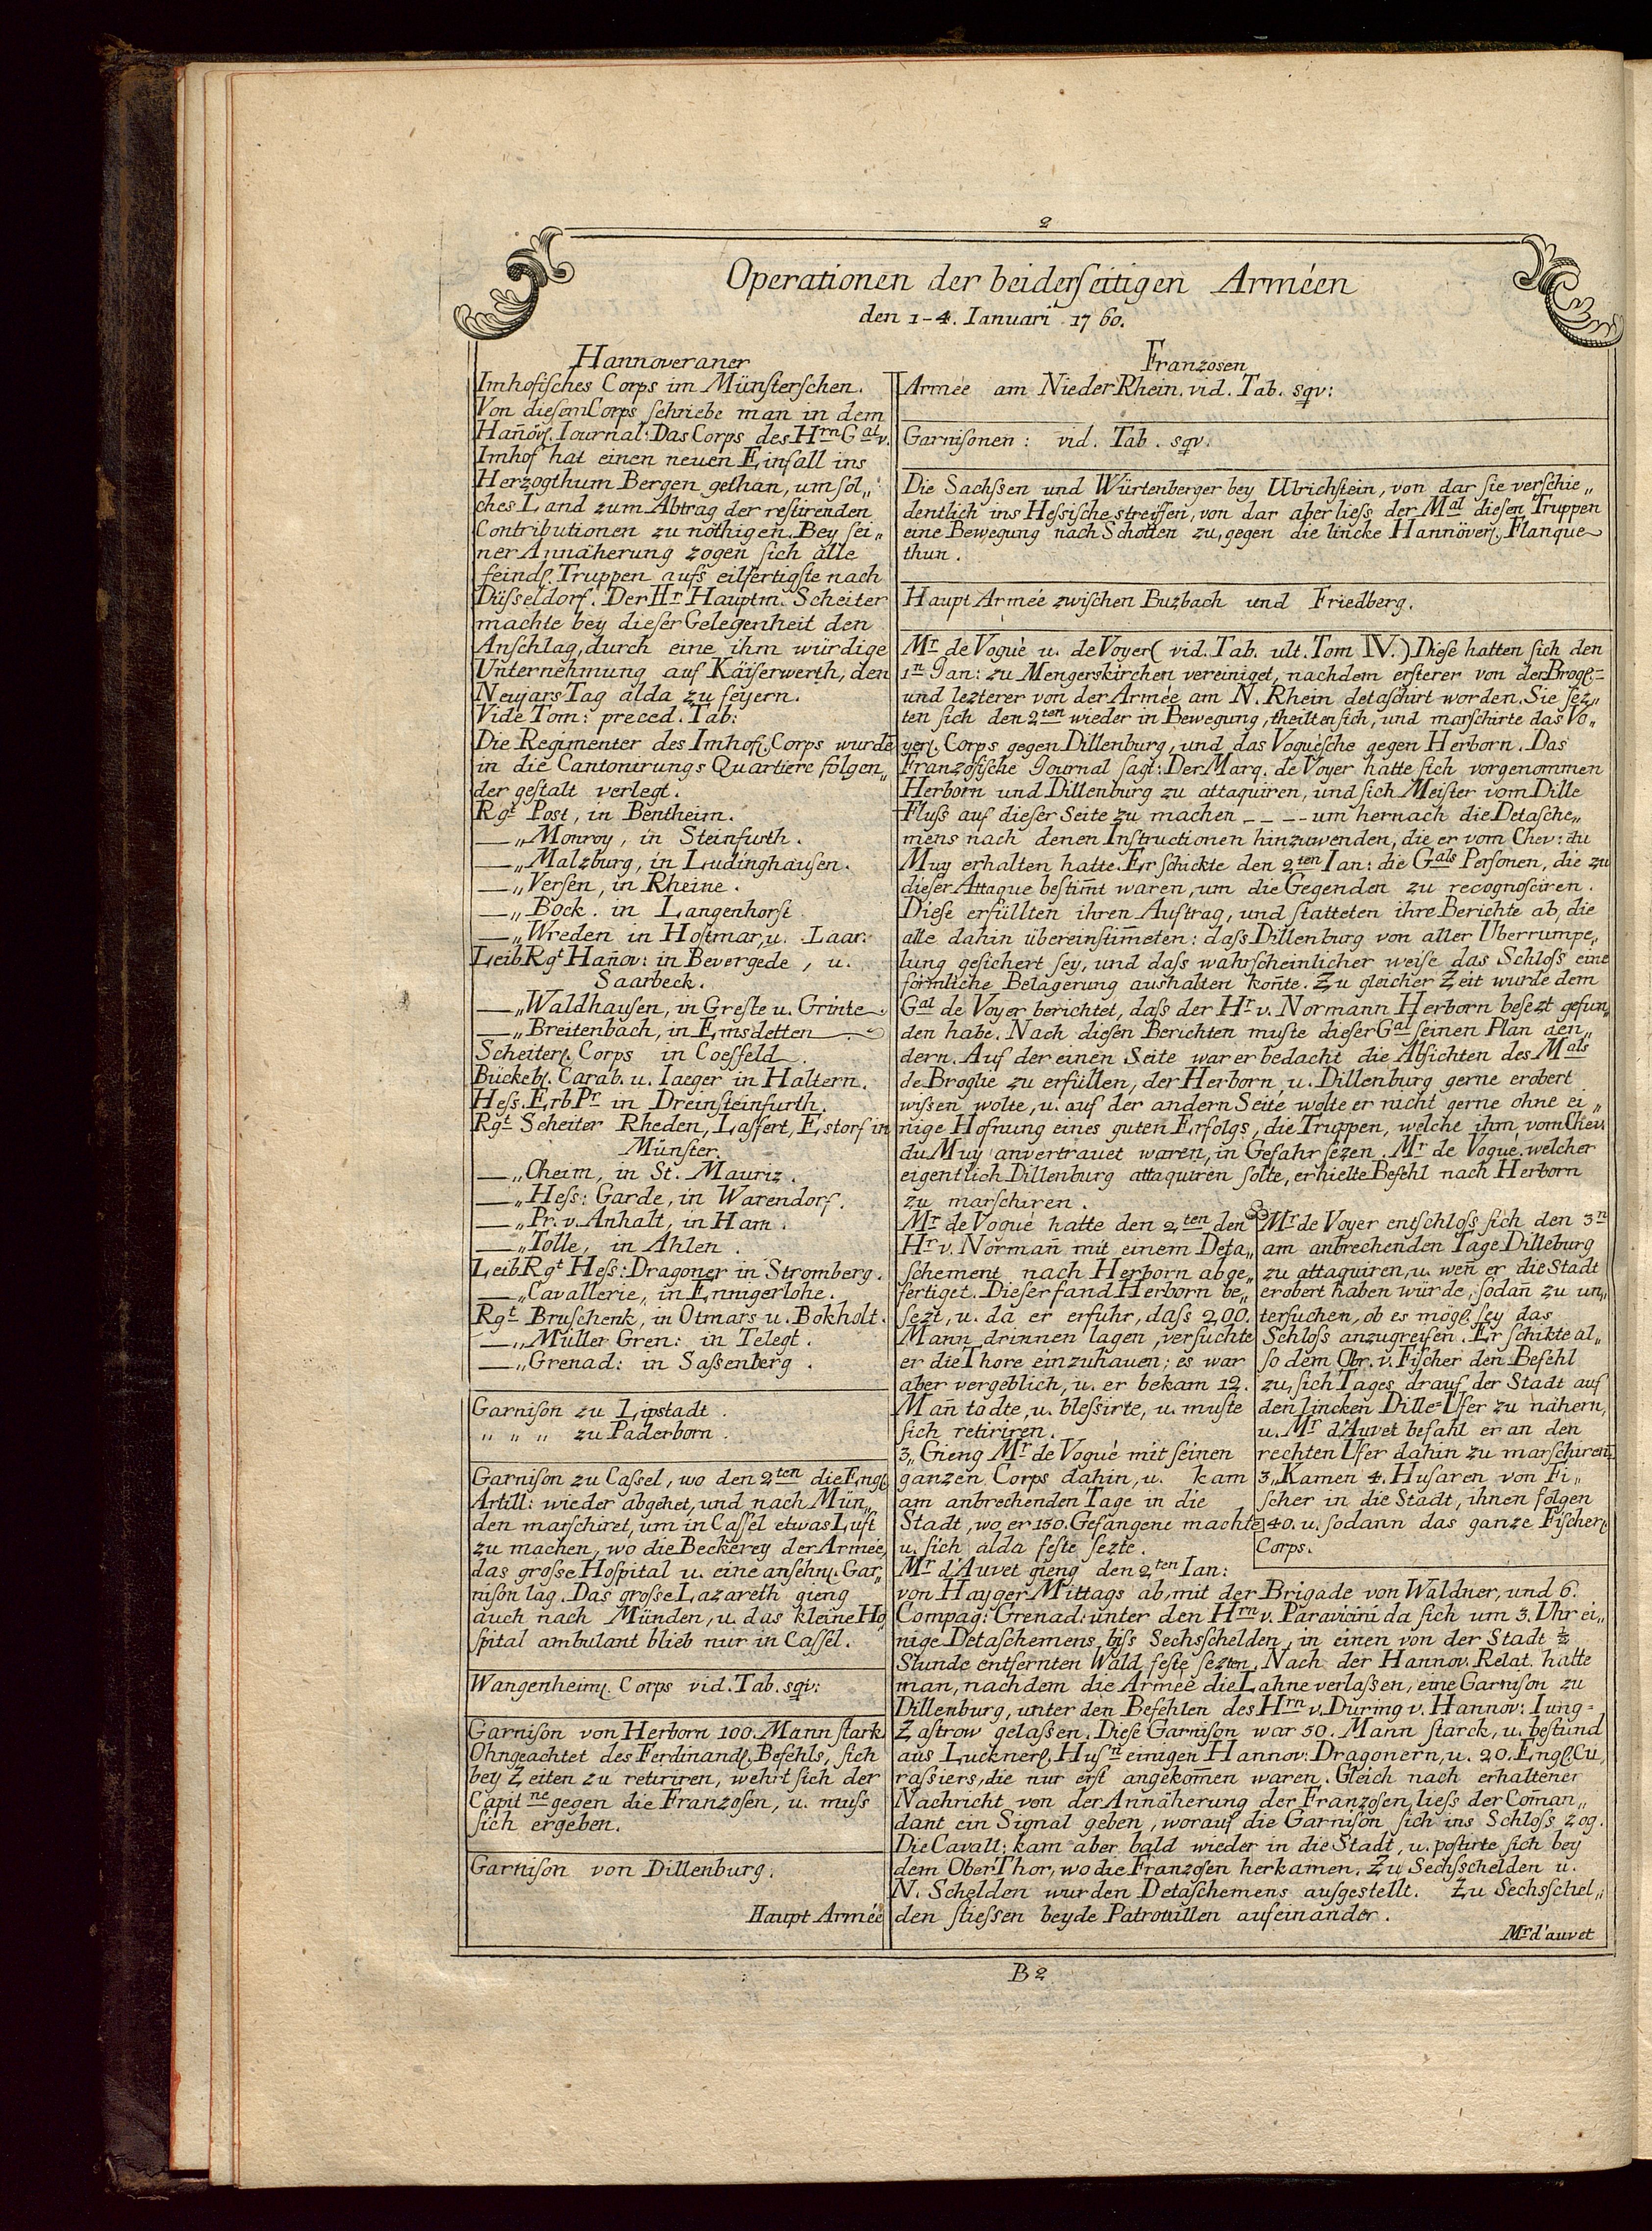 2
Operationen der beiderſeitigen Arméen
den 1-4. Ianuari 1760.
Hannoveraner
Imhofiſches Corps im Münſterſchen.
Von dieſem Corps ſchriebe man in dem
Hañöv. Iournal: Das Corps des Hrn Gal v.
Imhof hat einen neuen Einfall ins
Herzogthum Bergen gethan, um ſol„
ches Land zum Abtrag der reſtirenden
Contributionen zu nöthigen. Bey ſei„
ner Annäherung zogen ſich alle
feindl. Truppen aufs eilfertigſte nach
Düſseldorf. Der Hr Hauptm. Scheiter
machte bey dieſer Gelegenheit den
Anſchlag, durch eine ihm würdige
Unternehmung auf Käiſerwerth, den
Neujars Tag alda zu feyern.
Vide Tom: preced. Tab:
Die Regimenter des Imhof. Corps wurdē
in die Cantonirungs Quartiere folgen„
der geſtalt verlegt.
Rgt Post, in Bentheim.
—„Monroy, in Steinfurth.
—„Malzburg, in Ludinghauſen.
—„Verſen, in Rheine.
—„Bock. in Langenhorſt
—„Wreden in Hoſtmar, u. Laar.
Leib Rgt Hañov: in Bevergede, u.
Saarbeck.
—„Waldhauſen, in Greſte u. Grinte.
—„Breitenbach, in Emsdetten.
Scheiter. Corps in Coesfeld.
Bückeb. Carab. u. Iaeger in Haltern.
Heſs. Erb Pr in Dreinſteinfurth.
Rgt Scheiter Rheden, Laſfert, Estorf in
Münſter.
—„Cheim, in St. Mauriz.
—„Heſs: Garde, in Warendorf.
—„Pr. v. Anhalt, in Ham.
—„Tolle, in Ahlen.
Leib Rgt Heſs: Dragoner in Stromberg.
—„Cavallerie, in Ennigerlohe.
Rgt Bruſchenk, in Otmars u. Bokholt.
—„Müller Gren: in Telegt.
—„Grenad: in Saſsenberg.
Garniſon zu Lipstadt.
„ „ „ zu Paderborn.
Garniſon zu Caſsel, wo den 2ten die Engl.
Artill: wieder abgehet, und nach Mün„
den marſchiret, um in Caſsel etwas Luft
zu machen, wo die Beckerey der Armée,
das groſse Hoſpital u. eine anſehnl. Gar„
niſon lag. Das groſse Lazareth gieng
auch nach Münden, u. das kleine Ho„
ſpital ambulant blieb nur in Caſsel.
Wangenheim. Corps vid. Tab. sqv:
Garniſon von Herborn 100. Mann ſtark.
Ohngeachtet des Ferdinand. Befehls, ſich
bey Zeiten zu retiriren, wehrt ſich der
Capitne gegen die Franzoſen, u. muſs
ſich ergeben.
Garniſon von Dillenburg.
Haupt Armée
Franzosen
Armée am NiederRhein. vid. Tab. sqv:
Garniſonen: vid. Tab. sqv.
Die Sachſsen und Würtenberger bey Ulrichſtein, von dar ſie verſchie„
dentlich ins Heſsiſche streiffen, von dar aber lieſs der Mal dieſen Truppen
eine Bewegung nach Schotten zu, gegen die lincke Hannöver. Flanque
thun.
Haupt Armée zwiſchen Buzbach und Friedberg.
Mr de Vogué u. de Voyer (vid. Tab. ult. Tom IV.) Dieſe hatten ſich den
1n Jan: zu Mengerskirchen vereiniget, nachdem erſterer von der Brogl.=
und lezterer von der Armée am N. Rhein detaſchirt worden. Sie ſez„
ten ſich den 2ten wieder in Bewegung, theilten ſich, und marſchirte das Vo„
yer. Corps gegen Dillenburg, und das Voguéſche gegen Herborn. Das
Franzöſiſche Journal ſagt: Der Marq. de Voyer hatte ſich vorgenommen
Herborn und Dillenburg zu attaquiren, und ſich Meiſter vom Dille
Fluſs auf dieſer Seite zu machen _ _ _ _ um hernach die Detaſche„
mens nach denen Inſtructionen hinzuwenden, die er vom Chev: du
Muy erhalten hatte. Er ſchickte den 2ten Ian: die Gals Perſonen, die zu
dieſer Attaque beſtim̄t waren, um die Gegenden zu recognoſciren.
Dieſe erfüllten ihren Auftrag, und ſtatteten ihre Berichte ab, die
alle dahin übereinſtim̄eten: daſs Dillenburg von aller Uberrumpe„
lung geſichert ſey, und daſs wahrſcheinlicher weiſe das Schloſs eine
förmliche Belagerung aushalten koñte. Zu gleicher Zeit wurde dem
Gal de Voyer berichtet, daſs der Hr v. Normann Herborn beſezt gefun„
den habe. Nach dieſen Berichten muſte dieſer Gal ſeinen Plan aen„
dern. Auf der einen Seite war er bedacht die Abſichten des Mals
de Broglie zu erfüllen, der Herborn u. Dillenburg gerne erobert
wiſsen wolte, u. auf der andern Seite wolte er nicht gerne ohne ei„
nige Hofnung eines guten Erfolgs, die Truppen, welche ihm vom Chev.
du Muy anvertrauet waren, in Gefahr ſezen. Mr de Vogué welcher
eigentlich Dillenburg attaquiren ſolte, erhielte Befehl nach Herborn
zu marſchiren.
Mr de Vogué hatte den 2ten den
Hr v. Normañ mit einem Deta„
ſchement nach Herborn abge„
fertiget. Dieſer fand Herborn be„
ſezt, u. da er erfuhr, daſs 200.
Mann drinnen lagen, verſuchte
er die Thore einzuhauen; es war
aber vergeblich, u. er bekam 12.
Mañ todte, u. bleſsirte, u. muſte
ſich retiriren.
3„Gieng Mr de Vogué mit ſeinen
ganzen Corps dahin, u. kam
am anbrechenden Tage in die
Stadt, wo er 150. Gefangene machte
u. ſich alda feſte ſezte.
Mr de Voyer entſchloſs ſich den 3n
am anbrechenden Tage Dilleburg
zu attaquiren, u. weñ er die Stadt
erobert haben würde, ſodañ zu un„
terſuchen, ob es mögl. ſey das
Schloſs anzugreifen. Er ſchikte al„
ſo dem Obr. v. Fiſcher den Befehl
zu, ſich Tages drauf der Stadt auf
den lincken Dille=Ufer zu nähern,
u. Mr d'Auvet befahl er an den
rechten Ufer dahin zu marſchiren.
3„Kamen 4. Huſaren von Fi„
ſcher in die Stadt, ihnen folgen
40. u. ſodann das ganze Fiſcher.
Corps.
Mr d'Auvet gieng den 2ten Ian:
von Hayger Mittags ab, mit der Brigade von Waldner, und 6.
Compag: Grenad: unter den Hrn v. Paravicini da ſich um 3. Uhr ei„
nige Detaſchemens biſs Sechsſchelden, in einen von der Stadt ½
Stunde entfernten Wald feſte ſezten. Nach der Hannov. Relat. hatte
man, nachdem die Armée die Lahne verlaſsen, eine Garniſon zu
Dillenburg, unter den Befehlen des Hrn v. Düring v. Hannov: Iung=
Zaſtrow gelaſsen. Dieſe Garniſon war 50. Mann ſtarck, u. beſtund
aus Luckner. Huſn einigen Hannov: Dragonern, u. 20. Engl. Cu„
raſsiers, die nur erſt angekom̄en waren. Gleich nach erhaltener
Nachricht von der Annäherung der Franzoſen, lieſs der Coman„
dant ein Signal geben, worauf die Garniſon ſich ins Schloſs zog.
Die Cavall: kam aber bald wieder in die Stadt, u. poſtirte ſich bey
dem OberThor, wo die Franzoſen herkamen. Zu Sechsſchelden u.
N. Schelden wurden Detaſchemens ausgeſtellt. Zu Sechsſchel„
den ſtieſsen beyde Patrouillen aufeinander.
Mr d'auvet
B 2